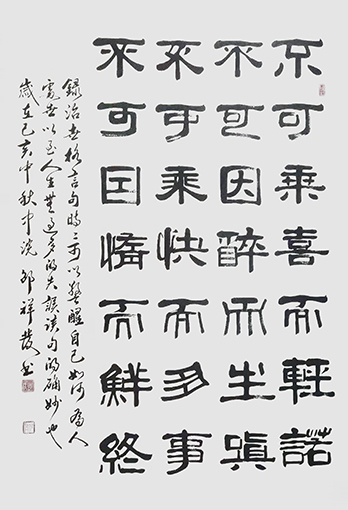 不可乘喜而輕諾
不可因醉而生嗔
不可乘快而多事
不可因惰而鮮終
錄治世格言句時時可以警醒自己如何為人
處世以至人生無過多的失誤讀句的確妙也
歲在己亥中秋中浣邹祥發書